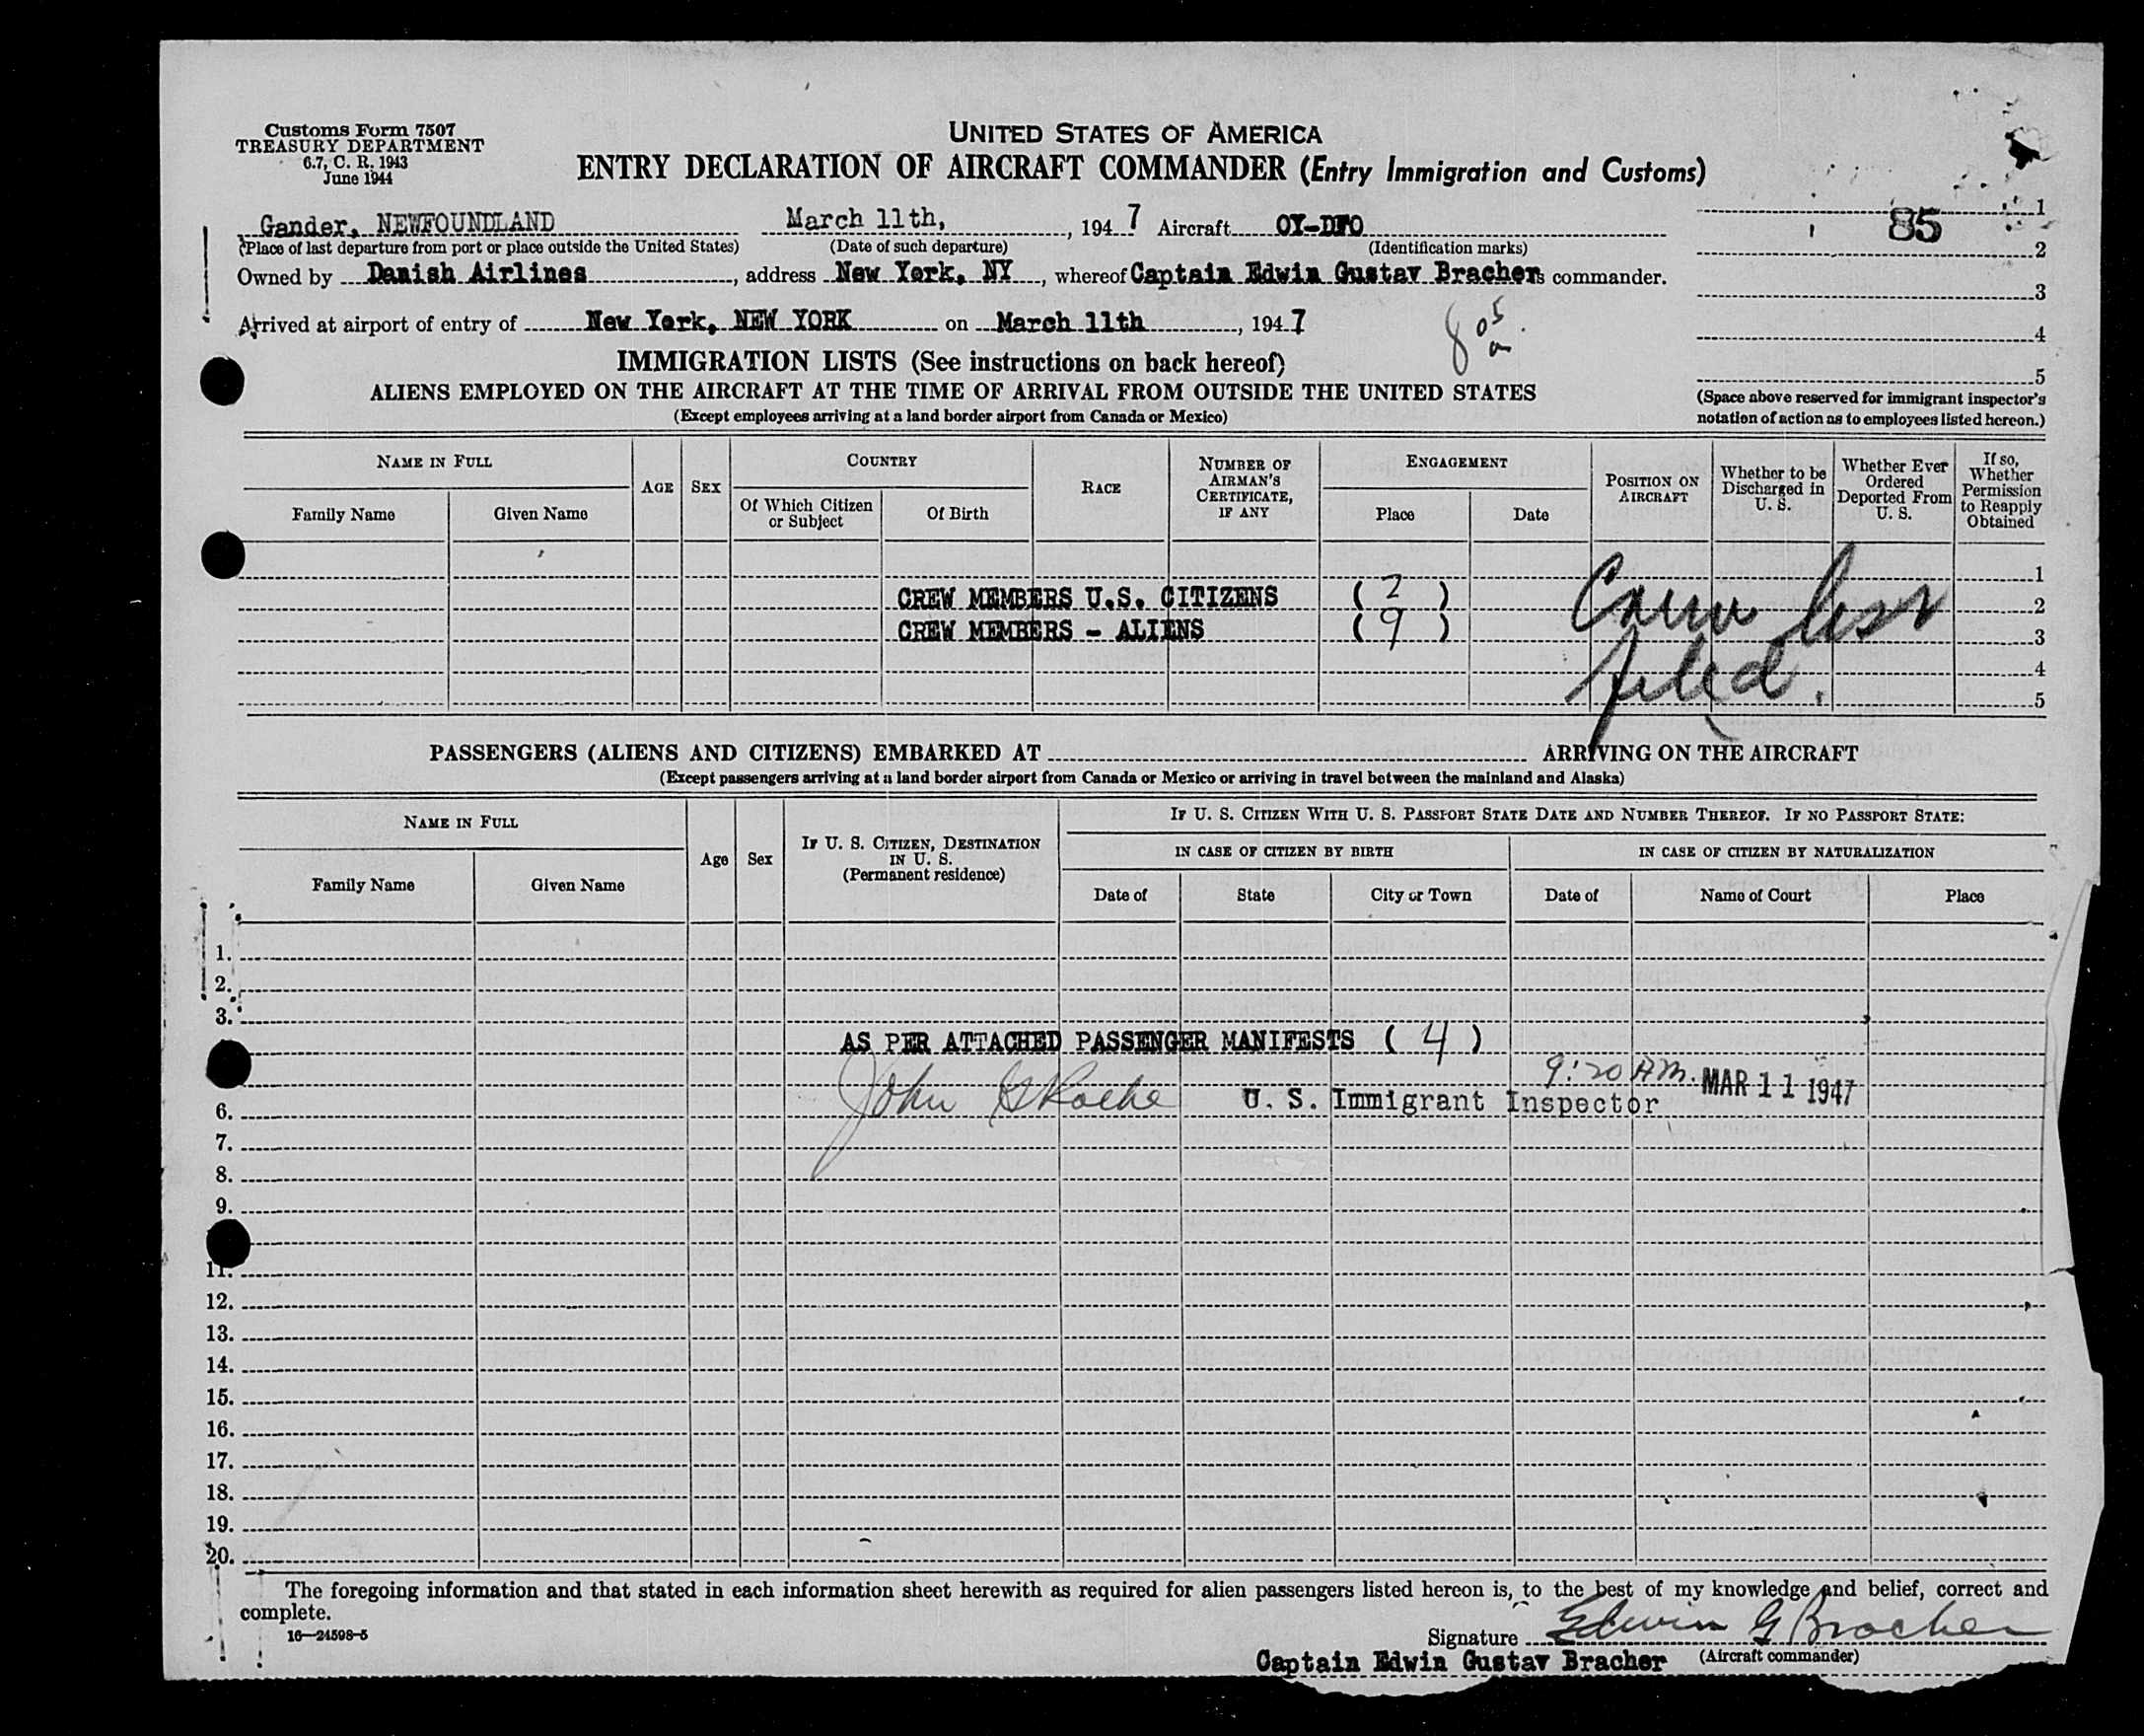 Customs Form 7507
TREASURY DEPARTMENT
6.7, C. R. 1943
June 1944
UNITED STATES OF AMERICA
ENTRY DECLARATION OF AIRCRAFT COMMANDER (Entry Immigration and Customs)
Gander, NEWFOUNDLAND March 11th, , 194 7 Aircraft OY-DFO
(Place of last departure from port or place outside the United States) (Date of such departure) (Identification marks)
Owned by Danish Airlines, address New York, NY, whereof Captain Edwin Gustav Bracher is commander.
Arrived at airport of entry of New York, NEW YORK on March 11th, 194 7
8 05 a
85
1
2
3
4
5
(Space above reserved for immigrant inspector's
notation of action as to employees listed hereon.)
IMMIGRATION LISTS (See instructions on back hereof)
ALIENS EMPLOYED ON THE AIRCRAFT AT THE TIME OF ARRIVAL FROM OUTSIDE THE UNITED STATES
(Except employees arriving at a land border airport from Canada or Mexico)
NAME IN FULL
Family Name
Given Name
AGE
SEX
COUNTRY
Of Which Citizen
or Subject
Of Birth
RACE
NUMBER OF
AIRMAN'S
CERTIFICATE,
IF ANY
ENGAGEMENT
Place
Date
POSITION ON
AIRCRAFT
Whether to be
Discharged in
U. S.
Whether Ever
Ordered
Deported From
U. S.
If so,
Whether
Permission
to Reapply
Obtained
1
CREW MEMBERS U.S. CITIZENS ( 2 ) 2
CREW MEMBERS - ALIENS ( 9 ) 3
4
5
filed.
PASSENGERS (ALIENS AND CITIZENS) EMBARKED AT ARRIVING ON THE AIRCRAFT
(Except passengers arriving at a land border airport from Canada or Mexico or arriving in travel between the mainland and Alaska)
NAME IN FULL
Family Name
Given Name
Age
Sex
IF U. S. CITIZEN, DESTINATION
IN U. S.
(Permanent residence)
IF U. S. CITIZEN WITH U. S. PASSPORT STATE DATE AND NUMBER THEREOF. IF NO PASSPORT STATE:
IN CASE OF CITIZEN BY BIRTH
IN CASE OF CITIZEN BY NATURALIZATION
Date of
State
City or Town
Date of
Name of Court
Place
1.
2.
3.
AS PER ATTACHED PASSENGER MANIFESTS ( 4 )
9:20 A.M. MAR 11 1947
John U. S. Immigrant Inspector
6.
7.
8.
9.
11.
12.
13.
14.
15.
16.
17.
18.
19.
20.
The foregoing information and that stated in each information sheet herewith as required for alien passengers listed hereon is, to the best of my knowledge and belief, correct and
complete.
16—24598-5
Signature Edwin G Bracher
Captain Edwin Gustav Bracher (Aircraft commander)